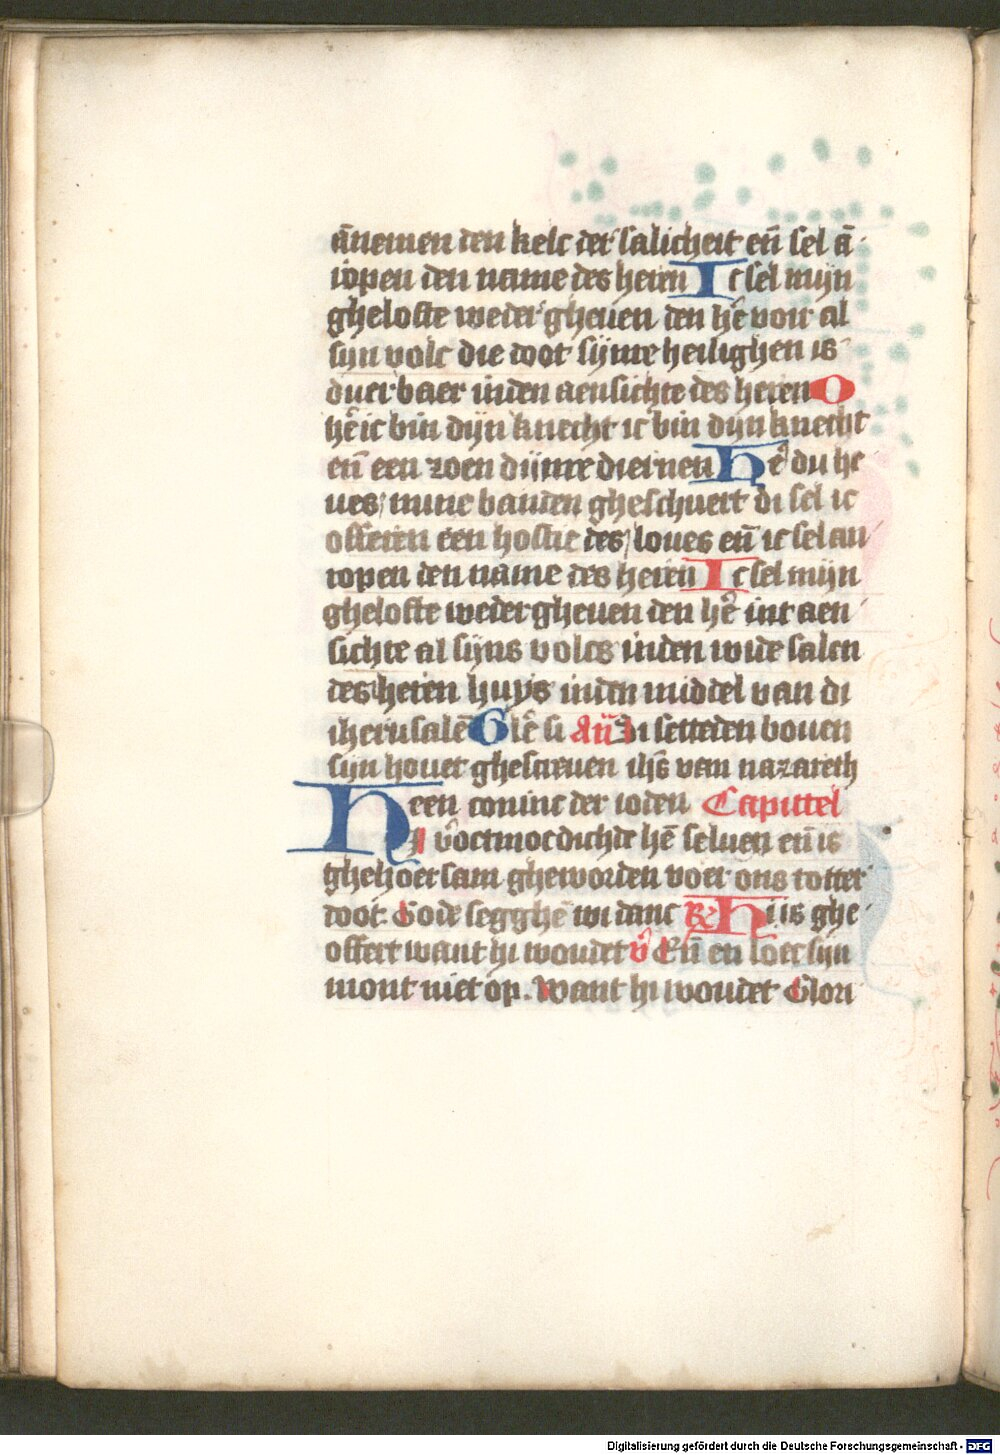 ānemen den kelc der salicheit eñ sel ā-
ropen den name des heren Ic sel mijn
ghelofte weder gheuen den hẽ voir al
sijn volc die doot sijnre heilighen is
duerbaer inden aensichte des heren O
hẽ ic bin dijn knecht ic bin dijn knecht
eñ een zoen dijnre diernen Hẽ du he
ues mine banden ghescheuert di sel ic
offeren een hostie des loues eñ ic sel an
ropen den name des heren Ic sel mijn
ghelofte weder gheuen den hẽ int aen
sichte al sijns volcs inden wide salen
des heren huys inden middel van di
iherusalē Glẽ si Añ Si setteden bouen
sijn houet ghescreuen ihs van nazareth
een coninc der ioden Capittel
Hi v̄oetmoedichde hē seluen eñ is
ghehoersam gheworden voer ons totter
doot. Gode segghē wi danc R Hi is ghe-
offert want hi woudet v̄ Eñ en loec sijn
mont niet op. Want hi woudet Glori
Digitalisierung gefördert durch die Deutsche Forschungsgemeinschaft - DFG